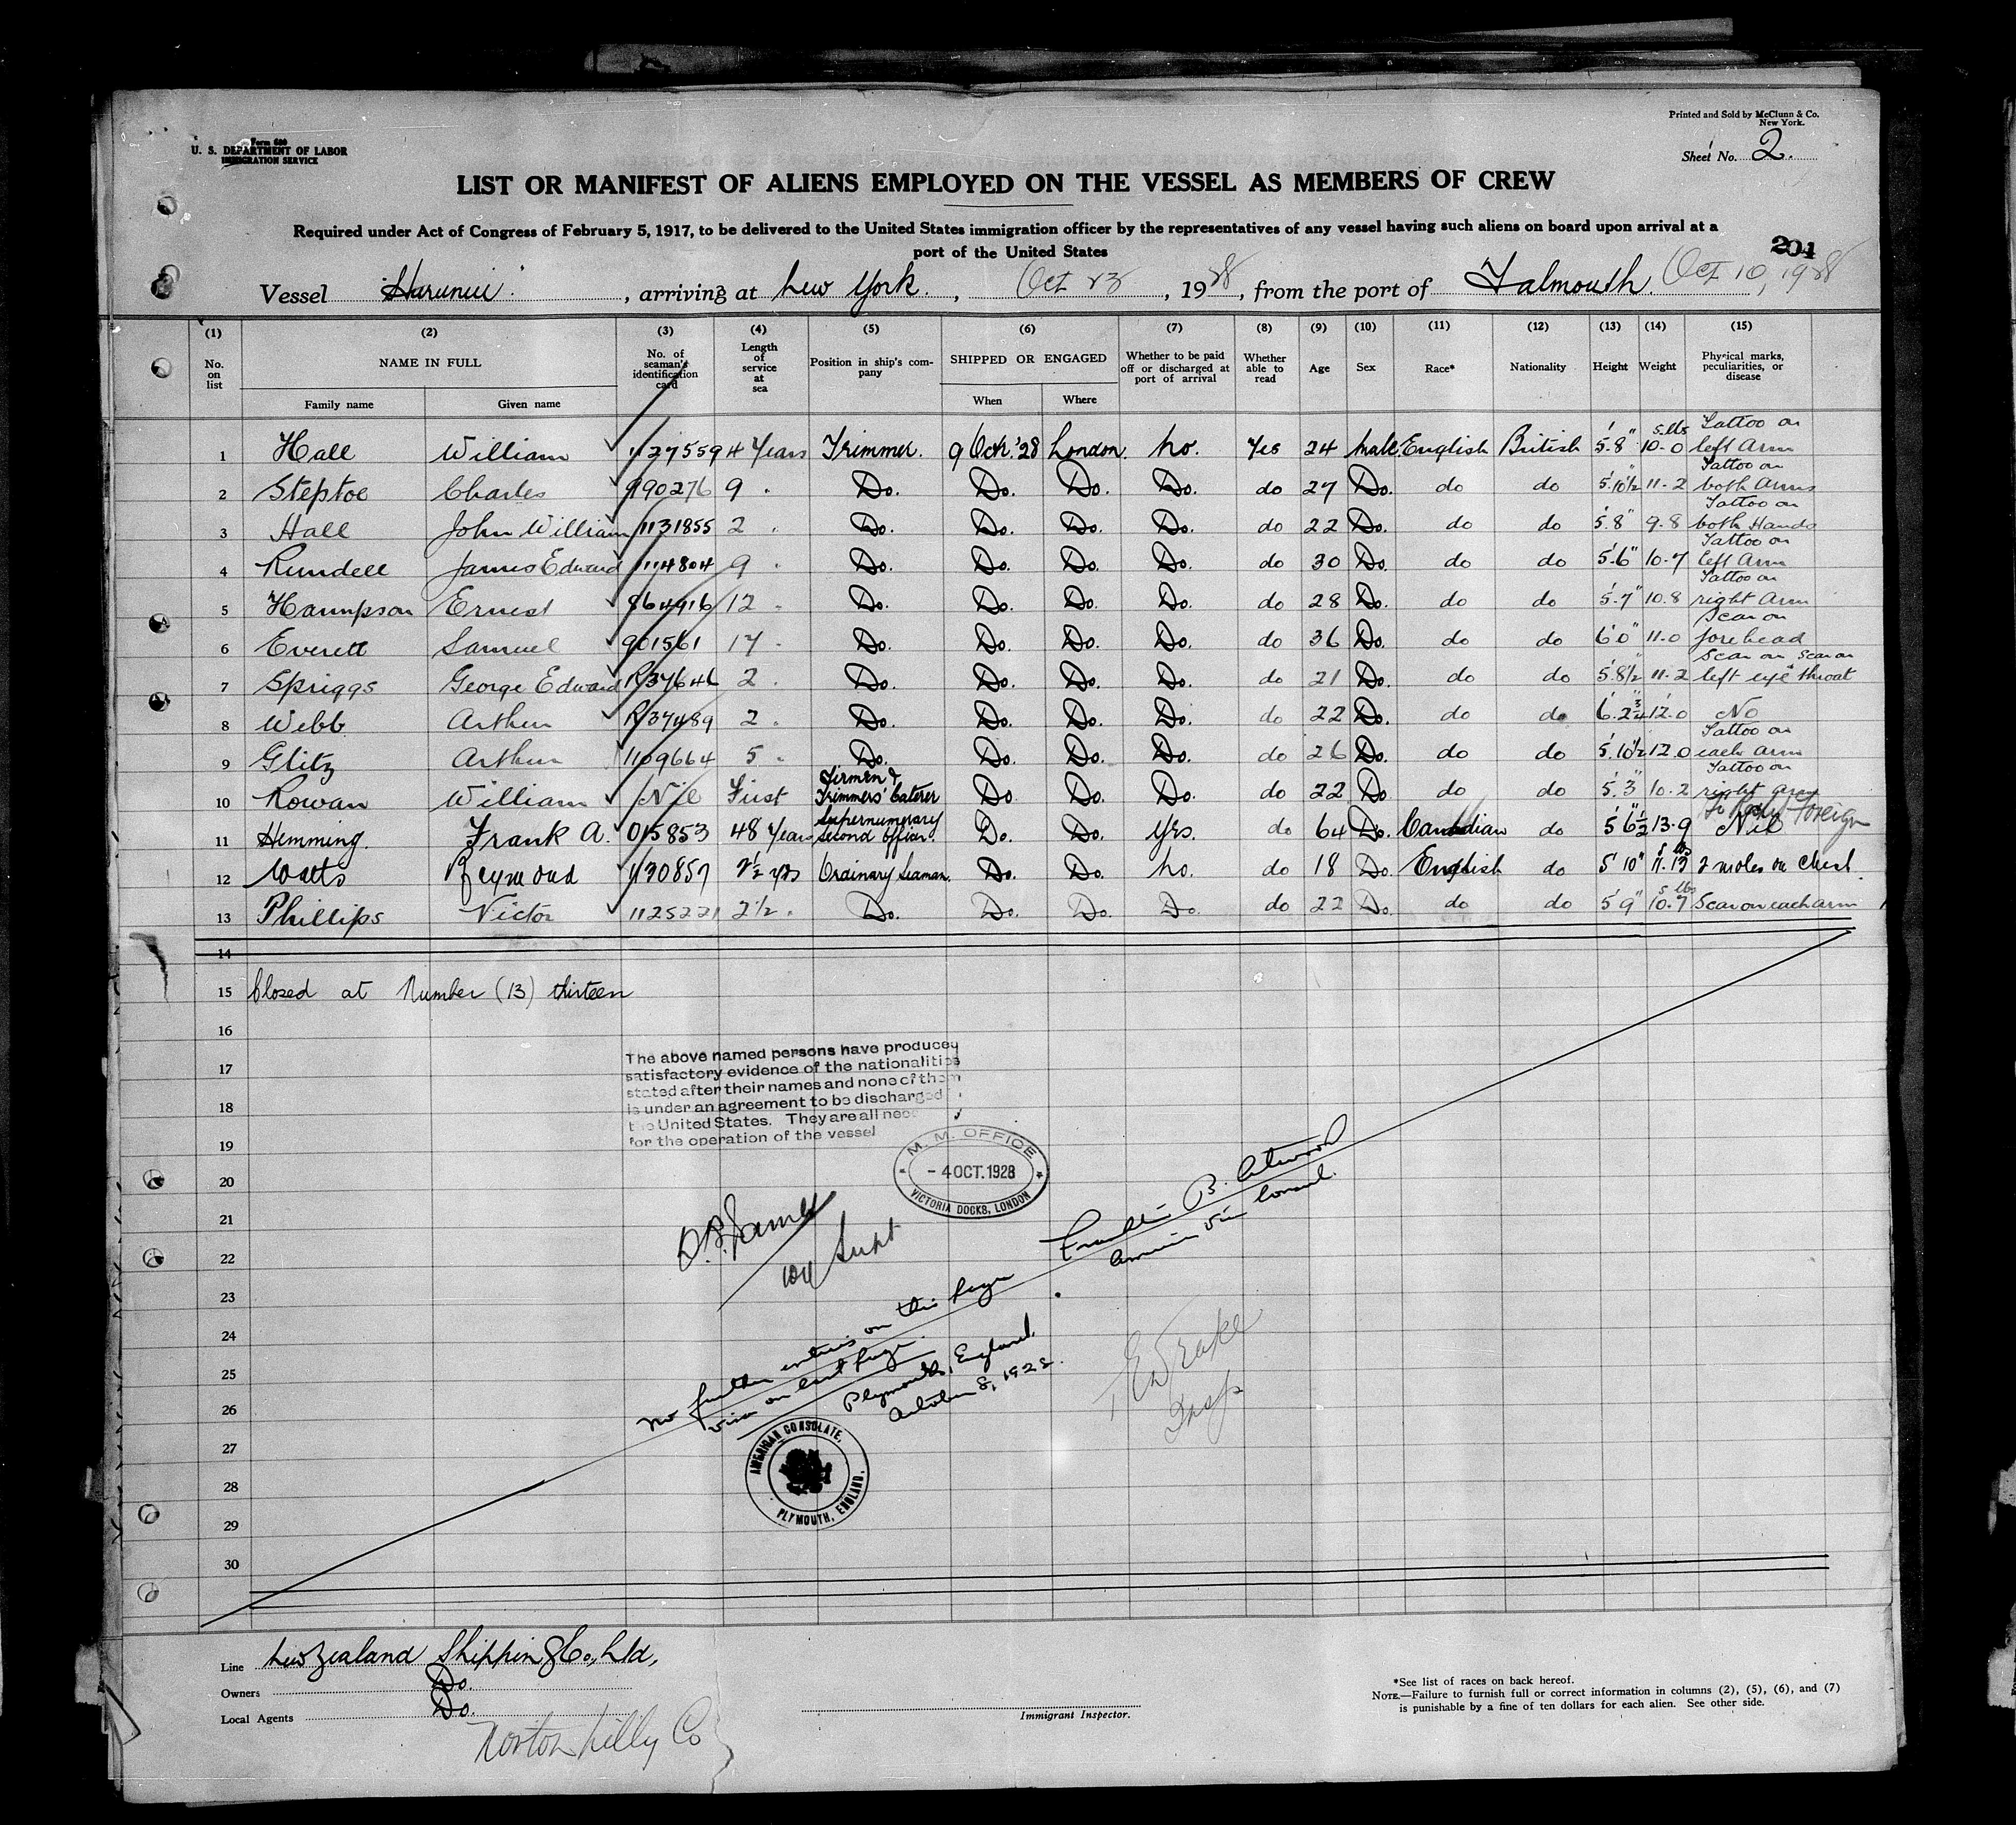 Form 680
U. S. DEPARTMENT OF LABOR
IMMIGRATION SERVICE
Printed and Sold by McClunn & Co.
New York.
Sheet No. 2.
LIST OR MANIFEST OF ALIENS EMPLOYED ON THE VESSEL AS MEMBERS OF CREW
Required under Act of Congress of February 5, 1917, to be delivered to the United States immigration officer by the representatives of any vessel having such aliens on board upon arrival at a
port of the United States
204
Vessel , arriving at New York. , Oct 23 , 1928 , from the port of Falmouth. Oct 10, 1928
(1) (2) (3) (4) (5) (6) (7) (8) (9) (10) (11) (12) (13) (14) (15)
No. on list NAME IN FULL No. of seaman's identification card Length of service at sea Position in ship's company SHIPPED OR ENGAGED Whether to be paid off or discharged at port of arrival Whether able to read Age Sex Race* Nationality Height Weight Physical marks, peculiarities, or disease
Family name Given name When Where
1 Hall William 1127559 4 Years Trimmer. 9 Oct. '28 London. No. Yes 24 Male English British 5'.8" 10-0 Tattoo on left Arm
2 Steptoe Charles 990276 9 " Do. Do. Do. Do. do 27 Do. do do 5'.10½ 11-2 Tattoo on both Arms
3 Hall John William 1131855 2 " Do. Do. Do. Do. do 22 Do. do do 5'.8" 9.8 Tattoo on both Hands
4 Rundell James Edward 1114804 9 " Do. Do. Do. Do. do 30 Do. do do 5'.6" 10.7 Tattoo on left Arm
5 Hampson Ernest 864916 12 " Do. Do. Do. Do. do 28 Do. do do 5'.7" 10.8 Tattoo on right Arm
6 Everett Samuel 901561 17 " Do. Do. Do. Do. do 36 Do. do do 6'0" 11.0 Scar on forehead
7 Spriggs George Edward R/37646 2 " Do. Do. Do. Do. do 21 Do. do do 5'.8½ 11-2 Scar on left eye Scar on throat
8 Webb Arthur R/37489 2 " Do. Do. Do. Do. do 22 Do. do do 6'.2¾ 12.0 No
9 Glitz Arthur 1109664 5 " Do. Do. Do. Do. do 26 Do. do do 5'.10½ 12.0 Tattoo on each arm
10 Rowan William Nil First Firmen & Trimmers' Caterer Do. Do. Do. do 22 Do do do 5'.3" 10.2 Tattoo on right arm
11 Hemming. Frank A. 015853 48 Years Supernumerary Second Officer. Do. Do. Yes. do 64 Do. Canadian do 5'6½" 13-9 Nil Foreign
12 Watts Reymond 1130857 2½ yrs Ordinary Seaman. Do. Do. No. do 18 Do. English do 5'10" 11.13 2 moles on Chest.
13 Phillips Victor 1125221 2½ " Do. Do. Do. Do. do 22 Do. do do 5'9" 10.7 Scar on each arm
14
15 Closed at Number (13) thirteen
16
17
18
19
20
21
22
23
24
25
26
27
28
29
30
The above named persons have produced
satisfactory evidence of the nationalities
stated after their names and none of them
is under an agreement to be discharged
the United States. They are all nec
for the operation of the vessel
M. M. OFFICE
- 4 OCT. 1928
VICTORIA DOCKS, LONDON
Supt
Franklin B. Atwood
American Vice Consul.
No further entries on this page
Visa on last page.
Plymouth, England.
October 8, 1928.
AMERICAN CONSULATE,
PLYMOUTH, ENGLAND.
Drake
Insp
Line New Zealand Shipping Co., Ltd,
Owners Do.
Local Agents Do.
Norton Lilly Co
Immigrant Inspector.
*See list of races on back hereof.
NOTE.—Failure to furnish full or correct information in columns (2), (5), (6), and (7)
is punishable by a fine of ten dollars for each alien. See other side.